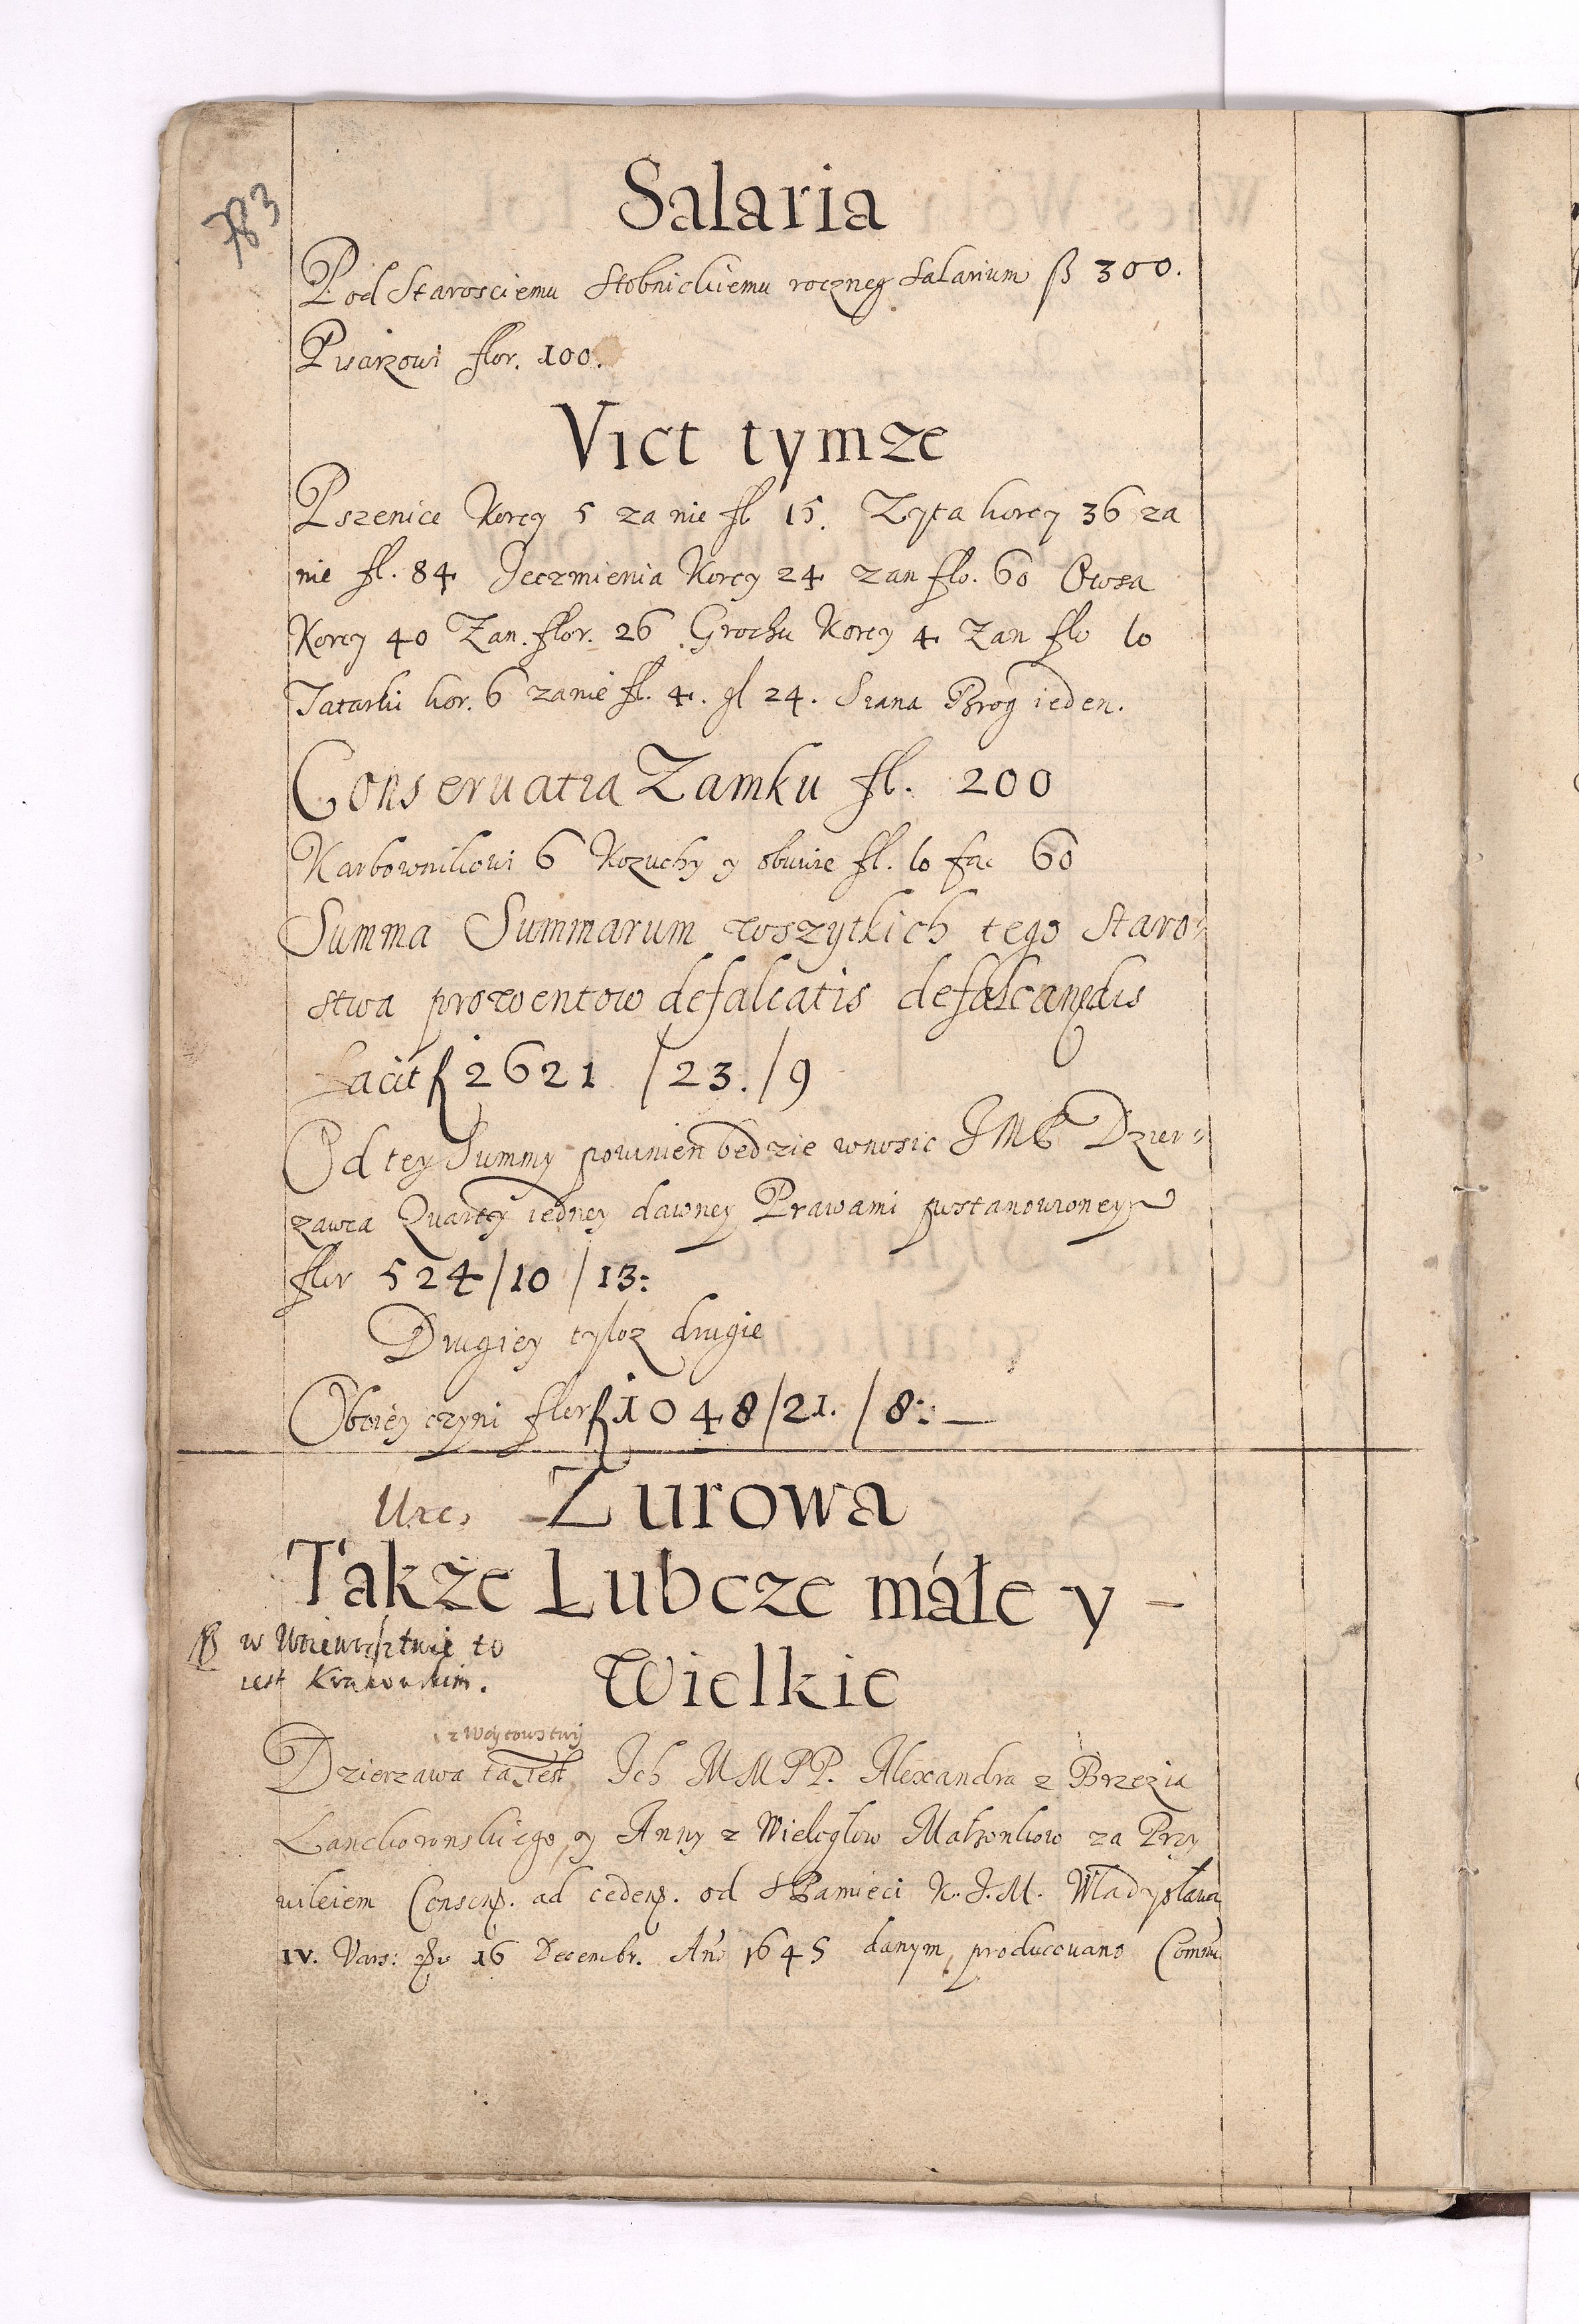 783
Salaria
Pod Starosciemu Stobnickiemu roczneg Salarium fl 300.
Pisarzowi flor. 100.
Vict tymze
Pszenice Korcy 5 za nie fl 15. Zyta korcy 36 za
nie fl. 84 Jeczmienia Korcy 24 zan flo. 60 Owsa
Korcy 40 Zan. flor. 26 Grochu Korcy 4 Zan flo 10
Tatarki kor. 6 zanie fl. 4. gl 24. Siana Brog ieden.
Conseruatia Zamku fl. 200
Karbownikowi 6 Kozuchy y obuwie fl. 10 fac 60
Summa Summarum wszytkich tego Staro=
stwa prowentow defalcatis defalcandis
facit f 2621 /23. /9
Od tey Summy powinien bedzie wnosic JMP Dzier=
zawca Quarty iedney dawney Prawami postanowioney
flor 524/10 /13:
Drugiey tyloz drugie
Oboiey czyni flor f 1048/21. /8:
Zurowa
Także Lubcze małe y -
w Woiewodztwie to
iest Krakowskim.
Wielkie
z Woytowstwy
Dzierzawa ta iest Ich MMPP. Alexandra z Brzezia
Lanckoronskiego y Anny z Wielogłow Małzonkow za Przy
wileiem Consens. ad cedend. od S Pamieci K. J. M. Władysława
IV. Vars: 16 Decembr. Ano 1645 danym, producowano